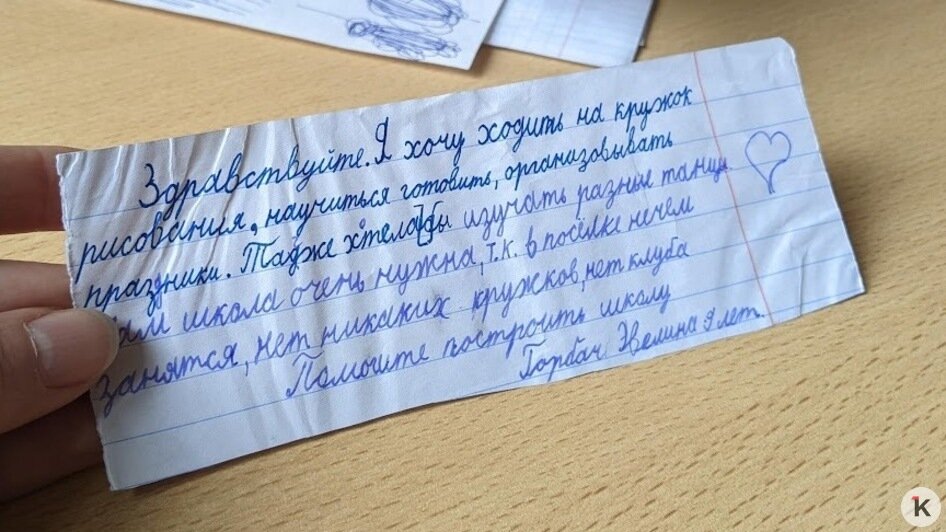 Здравствуйте. Я хочу ходить на кружок
рисования, научиться готовить, организовывать
праздники. Также хотела бы изучать разные танцы.
Нам школа очень нужна, т.к. в посёлке нечем
занятся, нет никаких кружков, нет клуба
Помогите построить школу
Горбач Эвелина 9 лет.
K